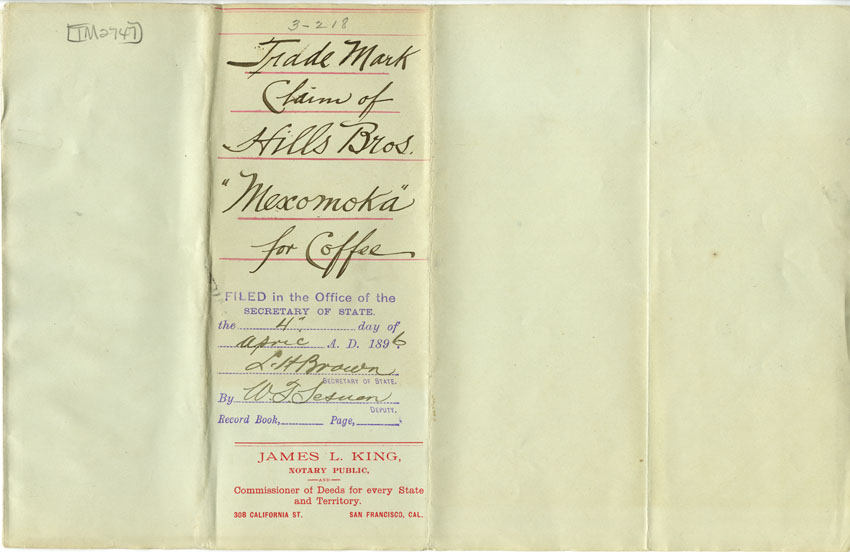 TM2747
3-218
Trade Mark
Claim of
Hills Bros.
"Mexomoka"
for Coffee
FILED in the Office of the
SECRETARY OF STATE.
the 4" day of
April A. D. 1896
L. H Brown
SECRETARY OF STATE.
By W. T. Sesnon
DEPUTY.
Record Book, Page,
JAMES L. KING,
NOTARY PUBLIC,
AND
Commissioner of Deeds for every State
and Territory.
308 CALIFORNIA ST. SAN FRANCISCO, CAL.